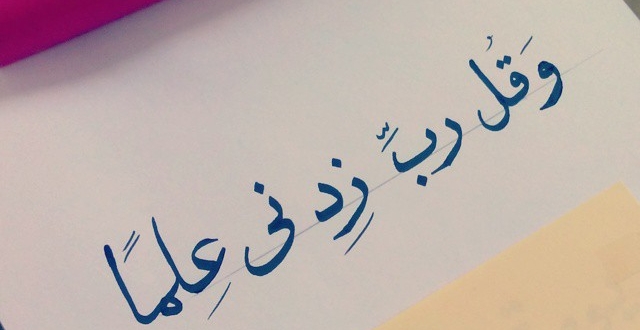 وَقُل رَبِّ زِدنی عِلمًا